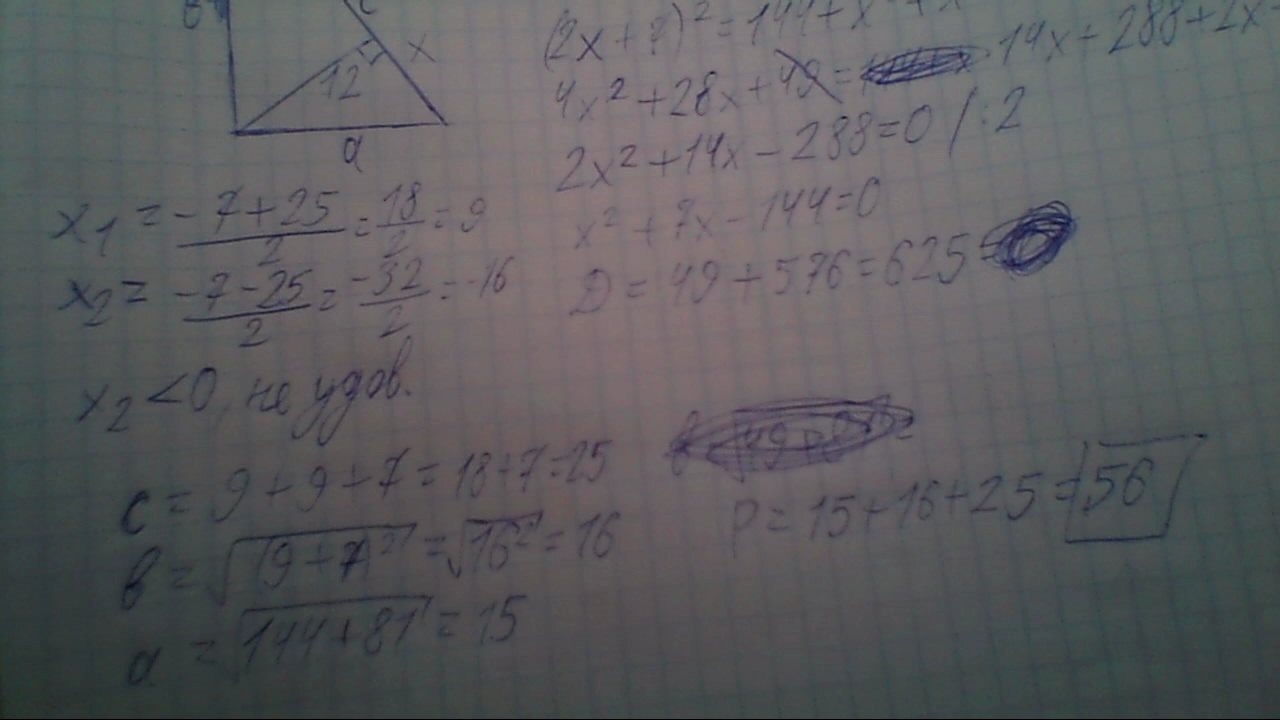 в
c
x
12
a
(2x+7)²=144+x
4x²+28x+49= 14x+288+2x
2x²+14x-288=0 /:2
x²+7x-144=0
D=49+576=625
x₁=(-7+25)/2=18/2=9
x₂=(-7-25)/2=-32/2=-16
x₂<0, не удов.
c=9+9+7=18+7=25
в=√(9+7)²=√16²=16
a=√144+81=15
P=15+16+25=56